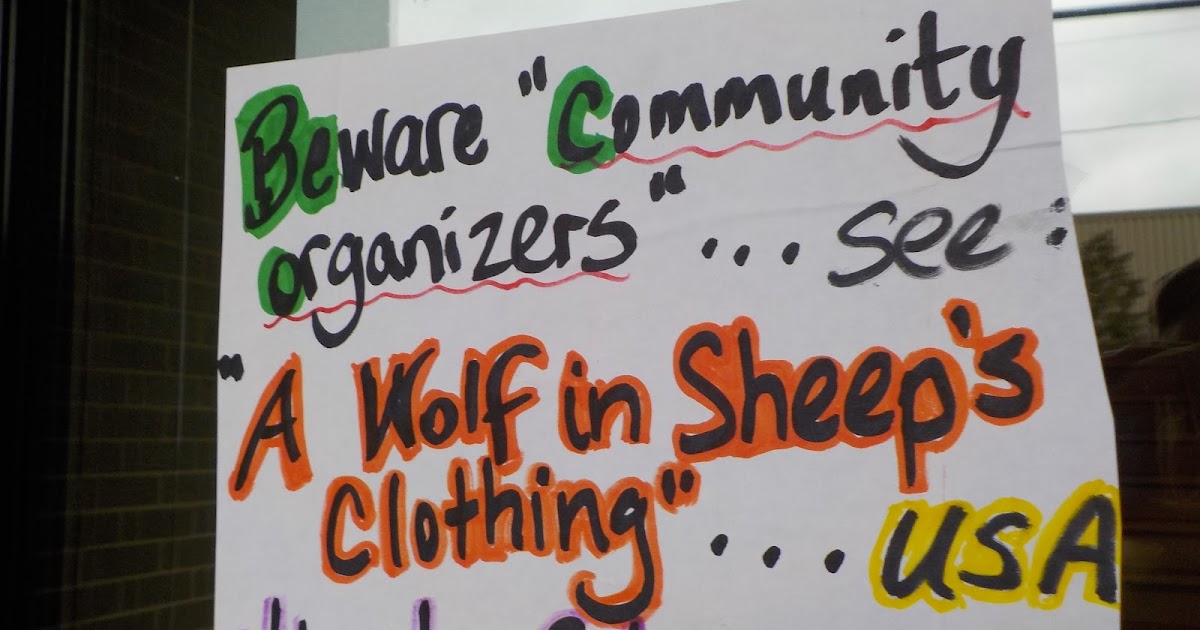 Beware "Community
organizers"... see:
"A Wolf in Sheep's
Clothing"... USA